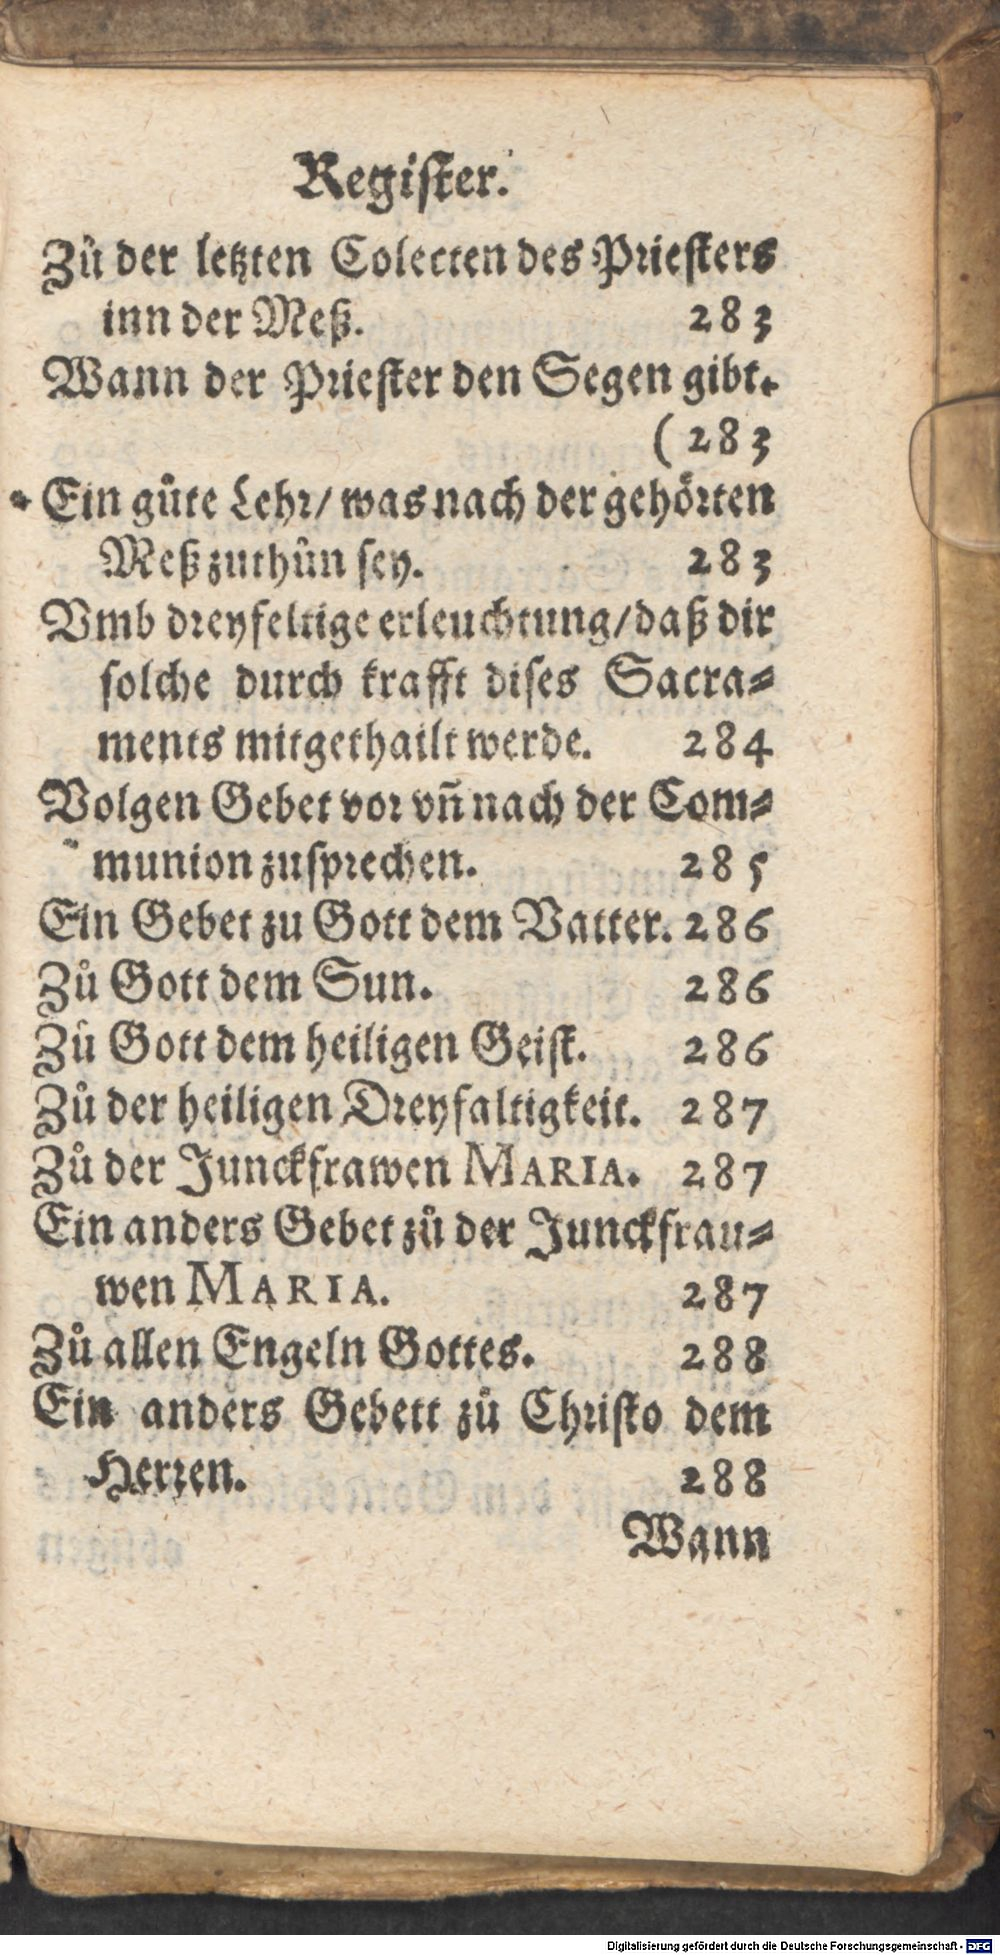 Register.
Zů der letzten Colecten des Priesters
inn der Meß. 283
Wann der Priester den Segen gibt.
(283
Ein gůte Lehr/ was nach der gehörten
Meß zuthůn sey. 283
Vmb dreyfeltige erleuchtung/ daß dir
solche durch krafft dises Sacra⸗
ments mitgethailt werde. 284
Volgen Gebet vor vñ nach der Com⸗
munion zusprechen. 285
Ein Gebet zu Gott dem Vatter. 286
Zů Gott dem Sun. 286
Zů Gott dem heiligen Geist. 286
Zů der heiligen Dreyfaltigkeit. 287
Zů der Junckfrawen MARIA. 287
Ein anders Gebet zů der Junckfrau⸗
wen MARIA. 287
Zů allen Engeln Gottes. 288
Ein anders Gebett zů Christo dem
Herren. 288
Wann
Digitalisierung gefördert durch die Deutsche Forschungsgemeinschaft - DFG